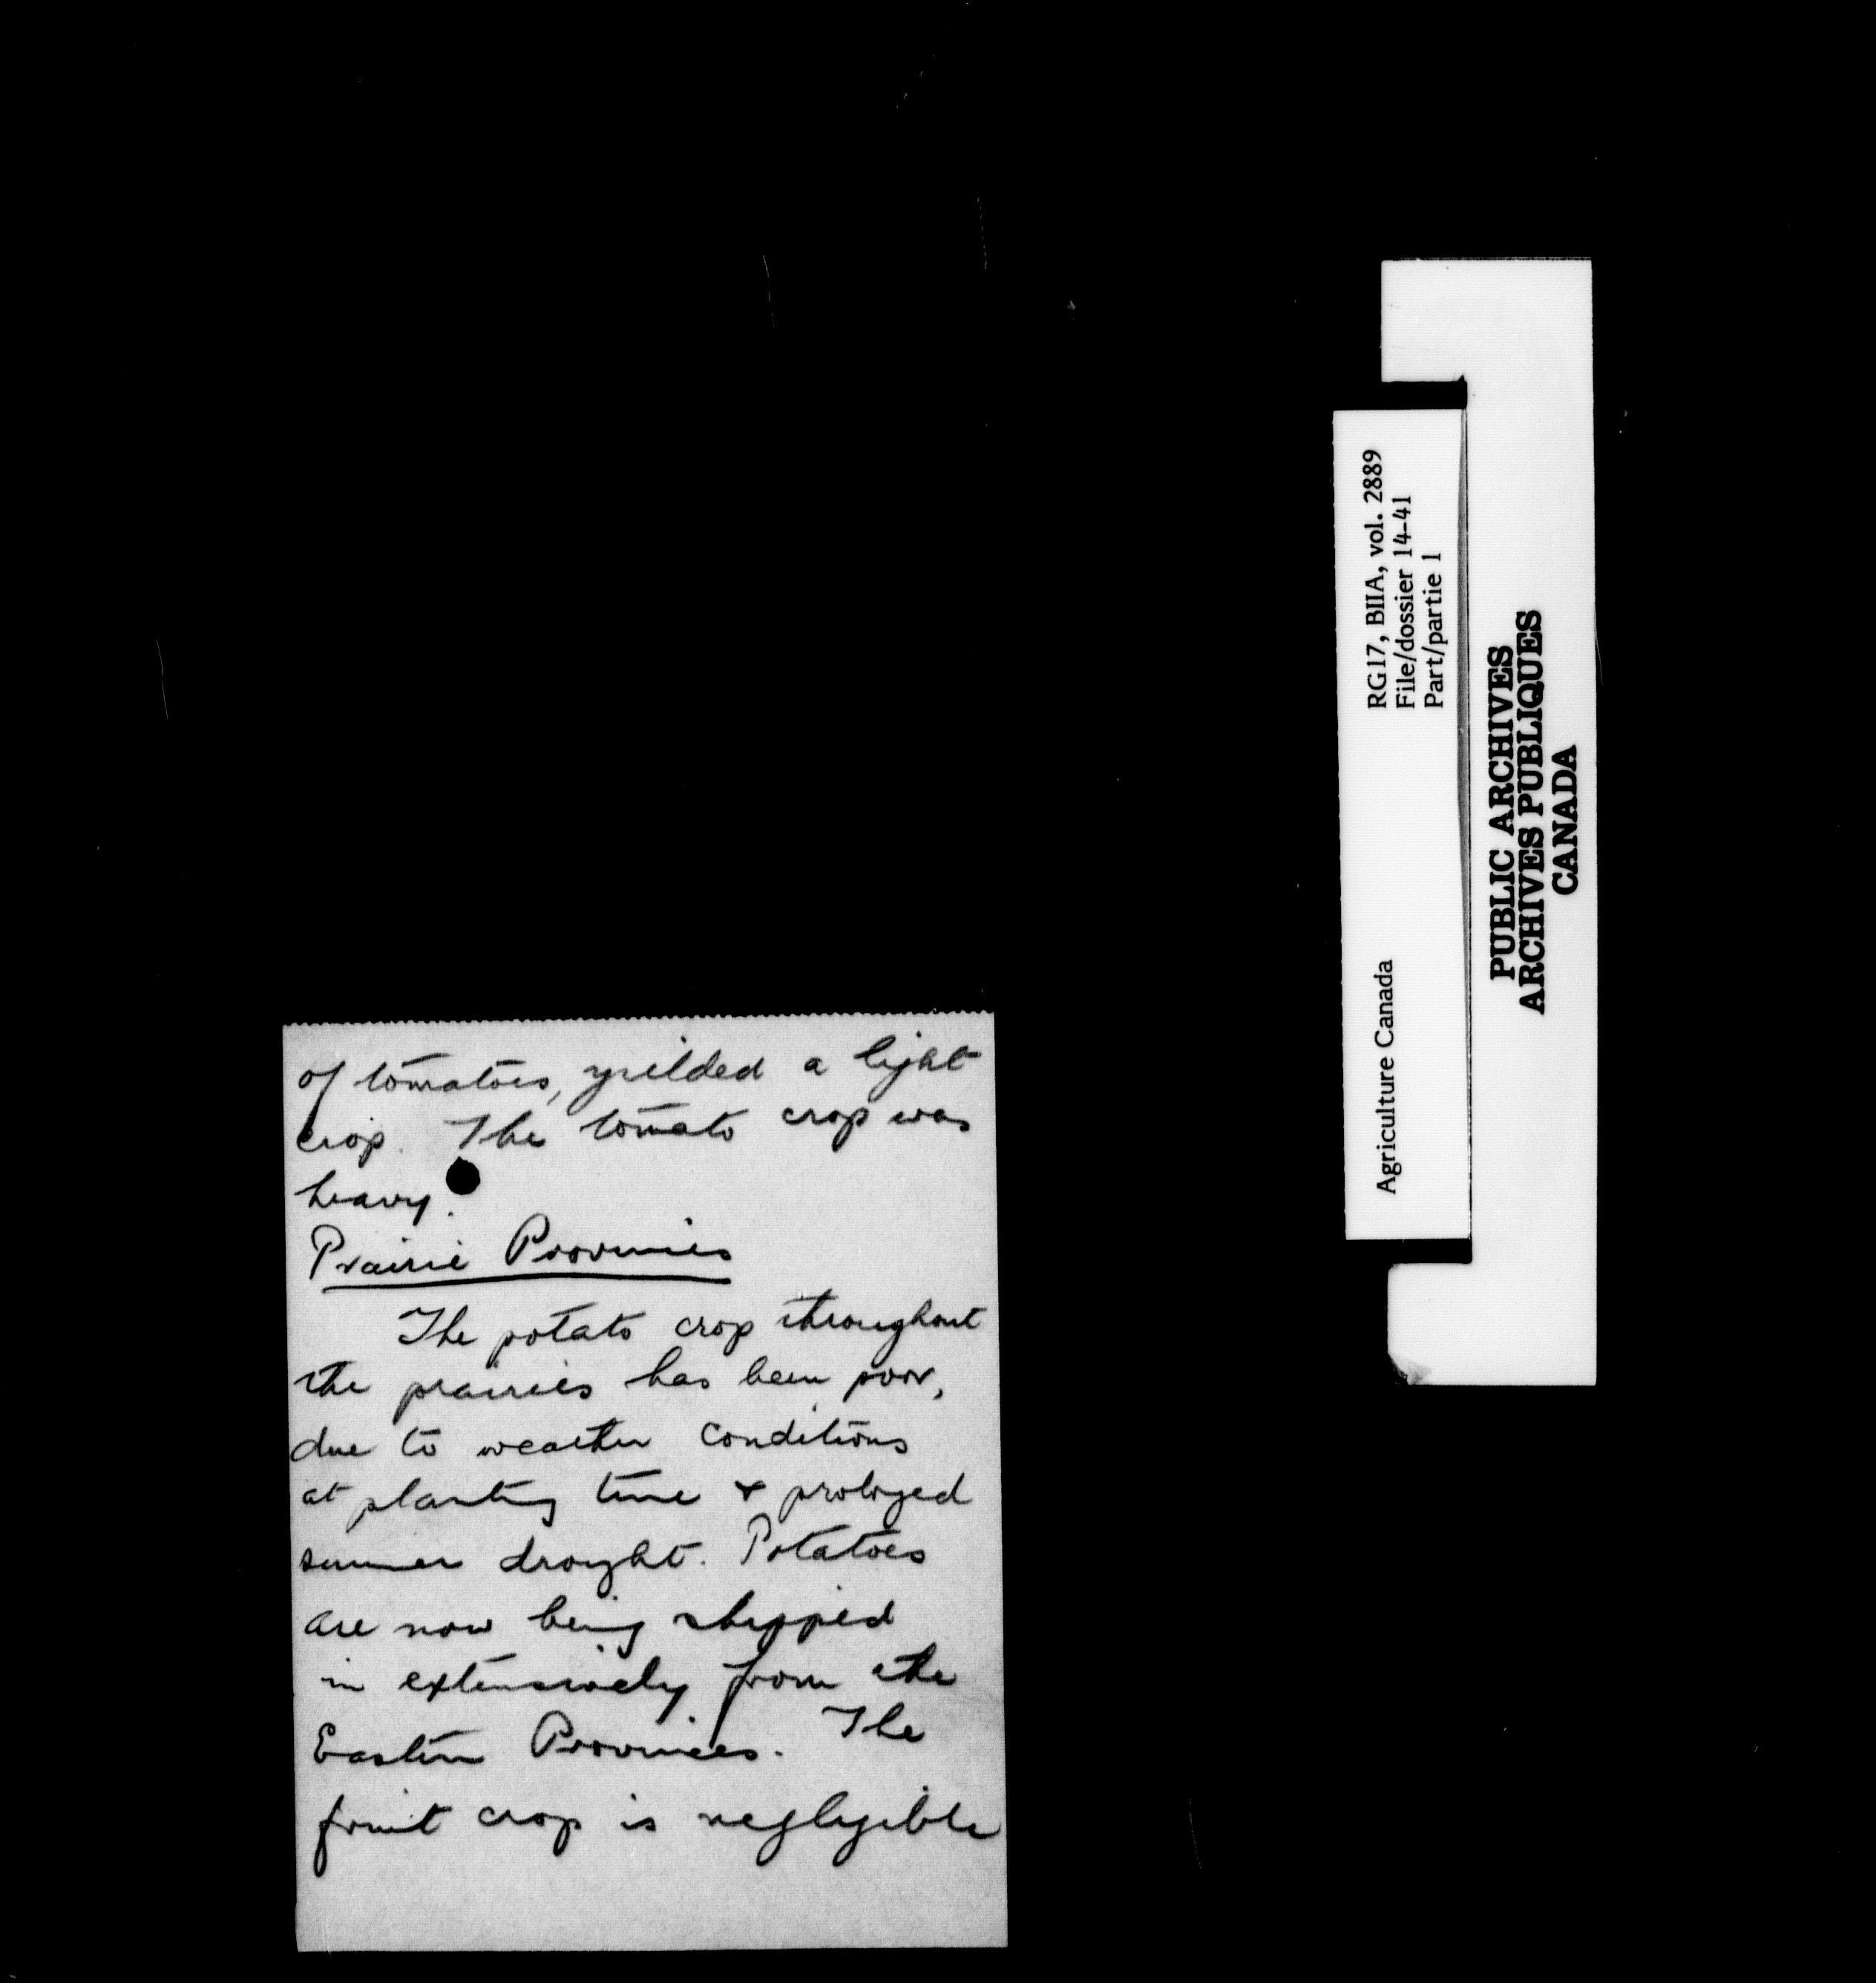 of tomatoes, yeilded a light
crop. The tomato crop was
heavy.
Prairie Provinces
The potato crop throughout
the prairies has been poor,
due to weather conditions
at planting time & prolonged
summer drought. Potatoes
are now being shipped
in extensively from the
Eastern Provinces. The
fruit crop is negligible
RG17, BIIA, vol. 2889
File/dossier 14-41
Part/partie 1
Agriculture Canada
PUBLIC ARCHIVES
ARCHIVES PUBLIQUES
CANADA